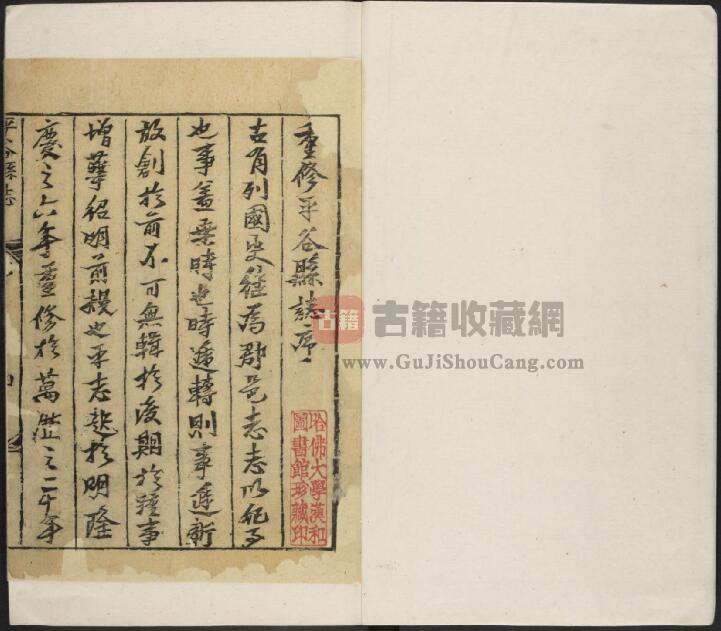 重修平谷縣誌序
古有列國史後為郡邑志志以紀事
也事蓋乘時也時遞轉則事遞新
故創於前不可無輯於後期於踵事
增華紹明前
也平志起於明隆
慶之六年重修於萬歷之二十年
平谷縣志
哈佛大學漢和
圖書館珍藏印
古籍
古籍收藏網
www.GuJiShouCang.com